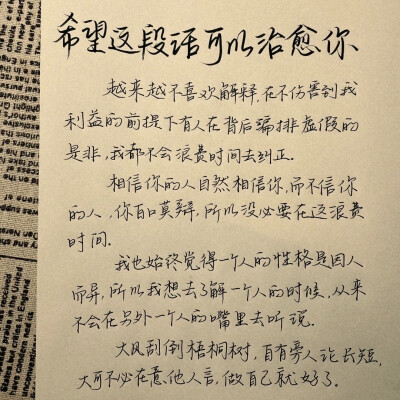 希望这段话可以治愈你
越来越不喜欢解释,在不伤害到我
利益的前提下有人在背后编排虚假的
是非,我都不会浪费时间去纠正.
相信你的人自然相信你,而不信你
的人,你百口莫辩,所以没必要在这浪费
时间.
我也始终觉得一个人的性格是因人
而异,所以我想去了解一个人的时候,从来
不会在另外一个人的嘴里去听说.
大风刮倒梧桐树,自有旁人论长短,
大可不必在意他人言,做自己就好了.